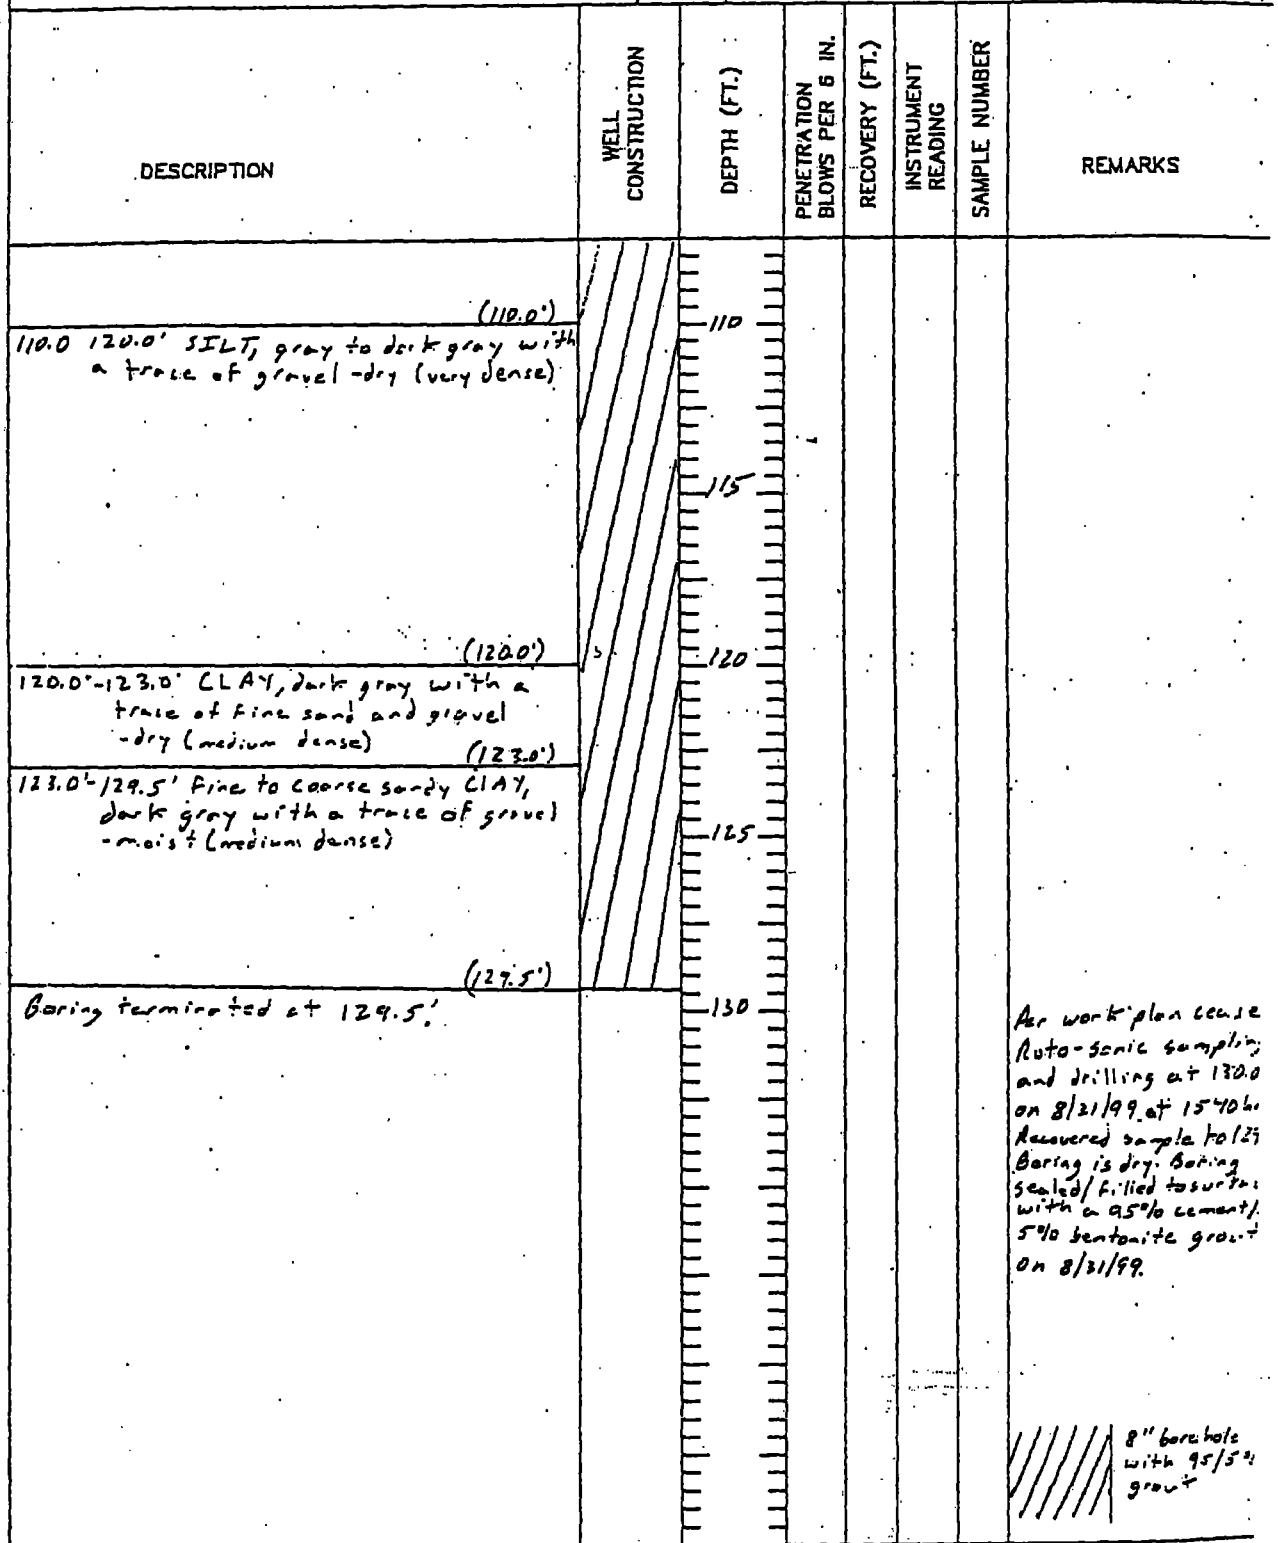 DESCRIPTION
WELL
CONSTRUCTION
DEPTH (FT.)
PENETRATION
BLOWS PER 6 IN.
RECOVERY (FT.)
INSTRUMENT
READING
SAMPLE NUMBER
REMARKS
(110.0')
110.0 120.0' SILT, gray to dark gray with
a trace of gravel -dry (very dense)
(120.0')
120.0'-123.0' CLAY, dark gray with a
trace of fine sand and gravel
-dry (medium dense)
(123.0')
123.0'-129.5' Fine to coarse sandy CLAY,
dark gray with a trace of gravel
-moist (medium dense)
(129.5')
Boring terminated at 129.5'
110
115
120
125
130
Per work plan cease
Roto-sonic sampling
and drilling at 130.0
on 8/31/99 at 1540 h
Recovered sample to 129
Boring is dry. Boring
sealed/filled to
with a 95% cement/
5% bentonite grout
on 8/31/99.
8" borehole
with 95/5%
grout